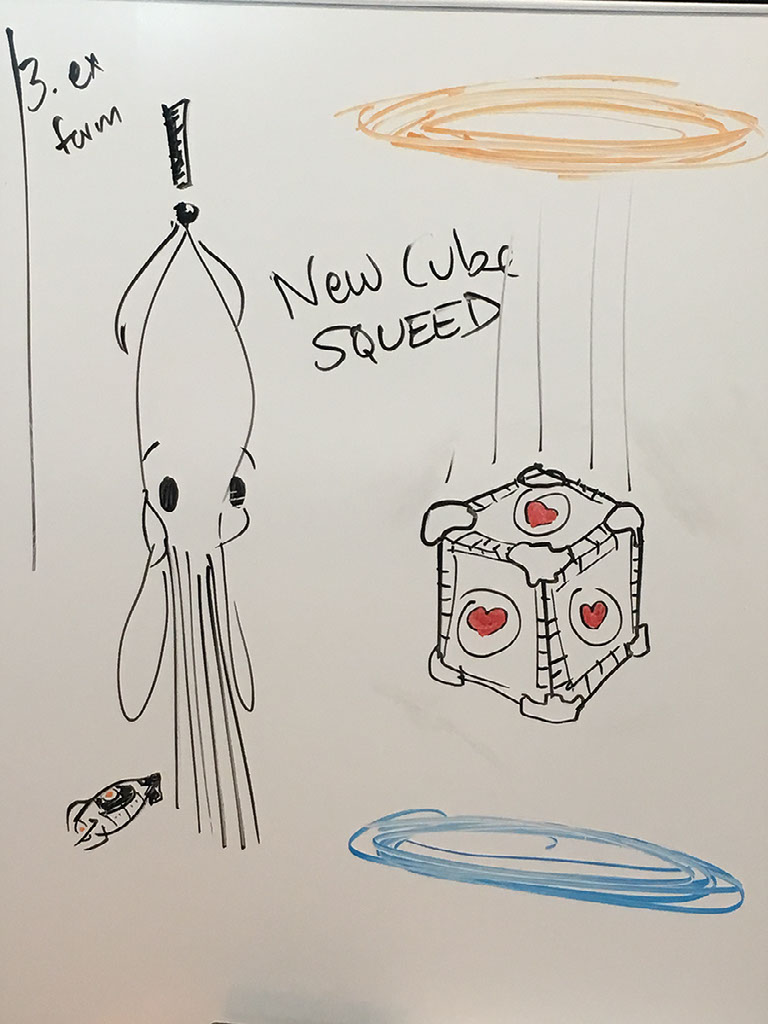 3. ex
form
New Cube
SQUEED